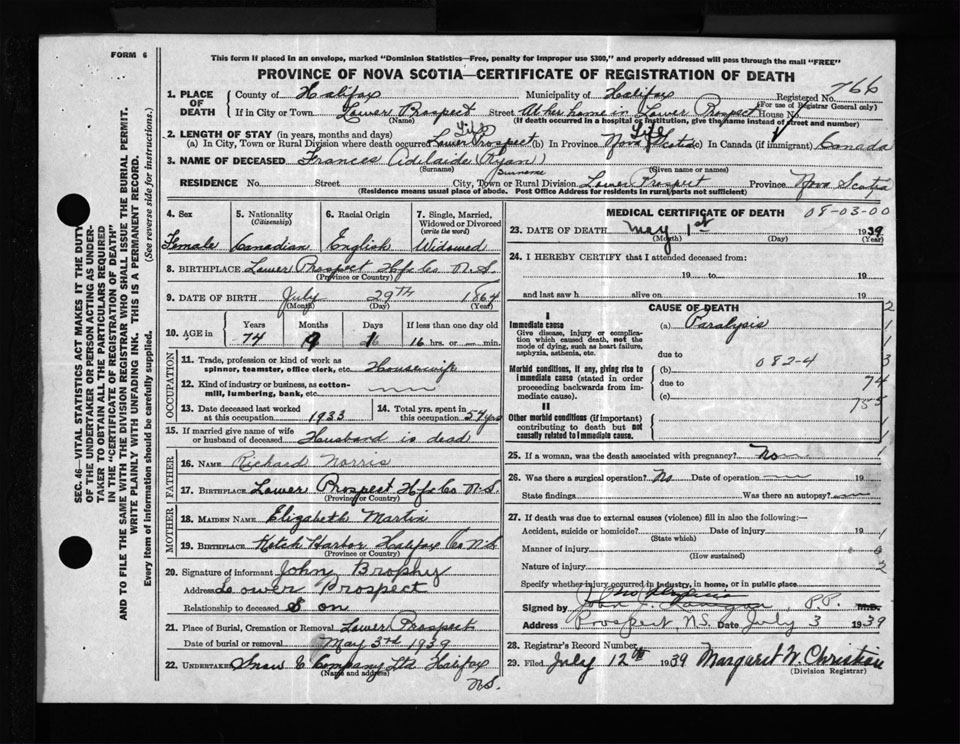 FORM 6
This form if placed in an envelope, marked "Dominion Statistics—Free, penalty for improper use $300," and properly addressed will pass through the mail "FREE"
PROVINCE OF NOVA SCOTIA—CERTIFICATE OF REGISTRATION OF DEATH
SEC. 46—VITAL STATISTICS ACT MAKES IT THE DUTY
OF THE UNDERTAKER OR PERSON ACTING AS UNDER-
TAKER TO OBTAIN ALL THE PARTICULARS REQUIRED
IN THE "CERTIFICATE OF REGISTRATION OF DEATH"
AND TO FILE THE SAME WITH THE DIVISION REGISTRAR WHO SHALL ISSUE THE BURIAL PERMIT.
WRITE PLAINLY WITH UNFADING INK. THIS IS A PERMANENT RECORD.
Every item of information should be carefully supplied. (See reverse side for instructions.)
1. PLACE OF DEATH County of Halifax Municipality of Halifax Registered No. 766
(For use of Registrar General only)
If in City or Town Lower Prospect Street At her home in Lower Prospect House No.
(Name) (If death occurred in a hospital or institution, give the name instead of street and number)
2. LENGTH OF STAY (in years, months and days) Life Life
(a) In City, Town or Rural Division where death occurred Lower Prospect (b) In Province Nova Scotia (c) In Canada (if immigrant) Canada
3. NAME OF DECEASED Frances Adelaide (Ryan)
(Surname) surname (Given name or names)
RESIDENCE No. Street City, Town or Rural Division Lower Prospect Province Nova Scotia
(Residence means usual place of abode. Post Office Address for residents in rural parts not sufficient)
4. Sex 5. Nationality (Citizenship) 6. Racial Origin 7. Single, Married, Widowed or Divorced (write the word)
Female Canadian English Widowed
8. BIRTHPLACE Lower Prospect Hfx Co N.S.
(Province or Country)
9. DATE OF BIRTH July 29th 1864
(Month) (Day) (Year)
10. AGE in Years Months Days If less than one day old
74 9 1 16 hrs. or min.
OCCUPATION
11. Trade, profession or kind of work as spinner, teamster, office clerk, etc. Housewife
12. Kind of industry or business, as cotton-mill, lumbering, bank, etc.
13. Date deceased last worked at this occupation 1933 14. Total yrs. spent in this occupation 54 yrs
15. If married give name of wife or husband of deceased Hausbard is dead
FATHER
16. NAME Richard Norris
17. BIRTHPLACE Lower Prospect Hfx Co N.S.
(Province or Country)
MOTHER
18. MAIDEN NAME Elizabeth Martin
19. BIRTHPLACE Ketch Harbor Halifax Co N.S.
(Province or Country)
20. Signature of informant John Brophy
Address Lower Prospect
Relationship to deceased Son
21. Place of Burial, Cremation or Removal Lower Prospect
Date of burial or removal May 3rd 1939
22. UNDERTAKER Snow & Company Ltd Halifax
(Name and address) N.S.
MEDICAL CERTIFICATE OF DEATH 08-03-00
23. DATE OF DEATH May 1st 1939
(Month) (Day) (Year)
24. I HEREBY CERTIFY that I attended deceased from:
19 to 19
and last saw h alive on 19
CAUSE OF DEATH
I
Immediate cause (a) Paralysis
Give disease, injury or complication which caused death, not the mode of dying, such as heart failure, asphyxia, asthenia, etc.
due to
082-4
Morbid conditions, if any, giving rise to immediate cause (stated in order proceeding backwards from immediate cause). (b)
due to 74
(c) 755
II
Other morbid conditions (if important) contributing to death but not causally related to immediate cause.
25. If a woman, was the death associated with pregnancy? No
26. Was there a surgical operation? No Date of operation
State findings Was there an autopsy?
27. If death was due to external causes (violence) fill in also the following:—
Accident, suicide or homicide? Date of injury 19
(State which)
Manner of injury
(How sustained)
Nature of injury
Specify whether injury occurred in industry, in home, or in public place
Signed by John P.P. M.D.
Address Prospect, N.S. Date July 3 1939
28. Registrar's Record Number
29. Filed July 12th 1939 Margaret W. Christian
(Division Registrar)